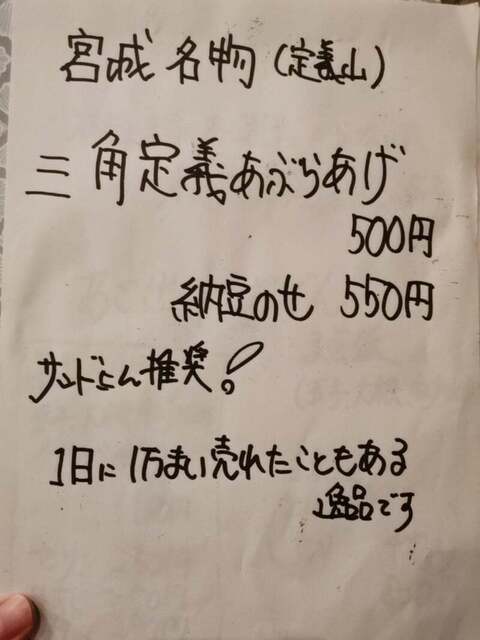 宮城名物(定義山)
三角定義あぶらあげ
500円
納豆のせ 550円
サンドさん推奨!
1日に1万まい売れたこともある
逸品です